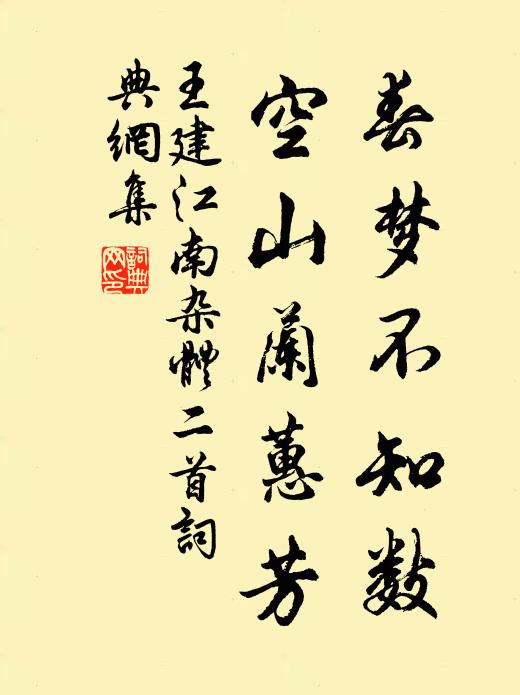 春梦不知数
空山蘭蕙芳
王建江南杂體二首詞
典網集
詞典
网印